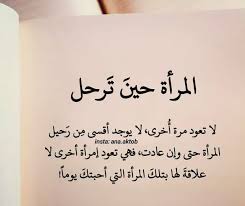 المرأة حينَ تَرحل
لا تعود مرة أُخرى، لا يوجد أقسى مِن رَحيل
insta: ana.aktob
المرأة حتى وإن عادت، فهي تعود إمرأة أخرى لا
علاقةَ لها بتلكَ المرأة التي أحبتكَ يوماً!